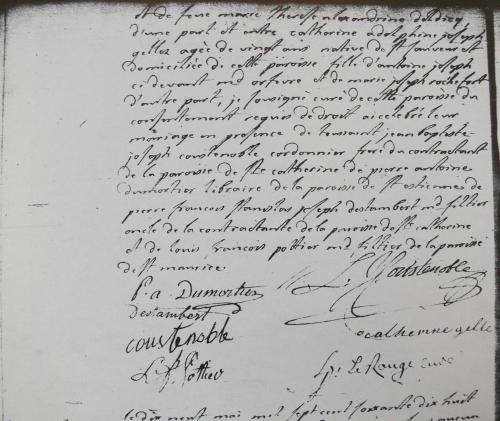 et de feue marie therese alexandrine delecq
d'une part et entre catherine adolphine joseph
gellez agée de vingt ans native de st sauveur et
domiciliée de cette paroisse fille d'antoine joseph
cidevant md orfevre et de marie joseph rochefort
d'autre part, je sousigné curé de cette paroisse du
consentement requis de droit ai celebré leur
mariage en presence de toussaint jean baptiste
joseph coustenoble cordonnier frere du contractant
de la paroisse de ste catherine de pierre antoine
dumortier libraire de la paroisse de st estienne de
pierre francois stanislas joseph destambert md fillier
oncle de la contractante de la paroisse de ste catherine
et de louis francois pottier md fillier de la paroisse
de st maurice.
P. a. Dumortier
L. J. Coustenoble
destambert
coustenoble
catherine gelle
L. F. Pottier
Lp. Le Rouge curé
le dix neuf mai mil sept cent soixante dix huit